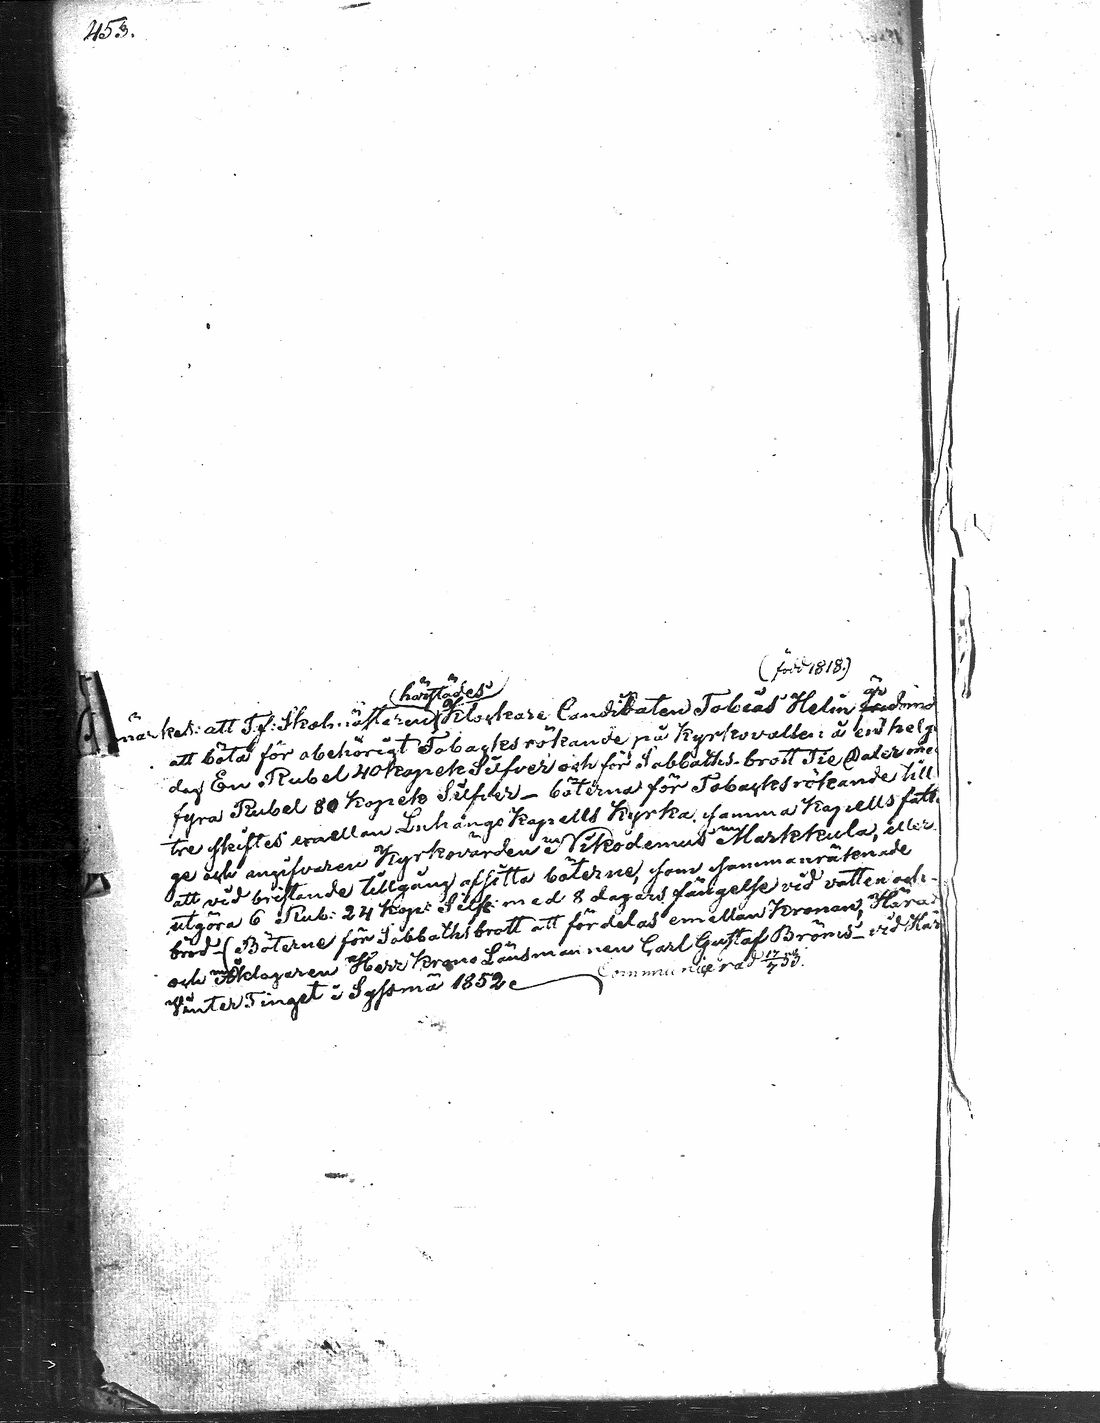 453.
(född 1818.)
(härstädes
märkes: att T.f. Skolmästaren Klockare Candidaten Tobias Helin är
att böta för obehörigt Tobacksrökande på Kyrkovallen å en helg
dag En Rubel 40 kopek Silfver och för Sabbaths-brott Tie Daler
fyra Rubel 80 kopek Silfver – böterna för Tobacksrökande till
tre skiftes emellan Luhango Kapells Kyrka, samma Kapells fatti
ge och angifvaren Kyrkovärden Nikodemus Markkula, eller
att vid bristande tillgång afsitta böterne, som sammanräknade
utgöra 6 Rub: 24 Kop: Silf: med 8 dagars fängelse vid vatten och
bröd – (Böterne för Sabbathsbrott att fördelas emellan Kronan, Härad
och Åklagaren Herr Krono Länsmannen Carl Gustaf Bröms – vid
Vinter Tinget i Sysmä 1852. Communicerad 53.